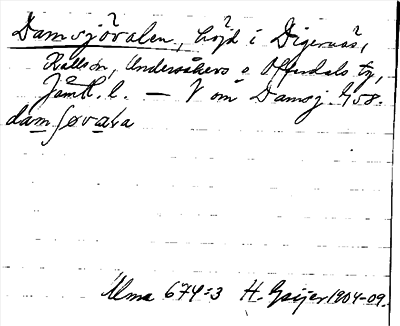 Damsjövalen, höjd i Digernäs,
Kallsön, Undersåkers o. Offerdals tg,
Jämtl. l. — V om Damsj. 958.
damʃøvala
Ulma 674:3 H. Geijer 1904-09.